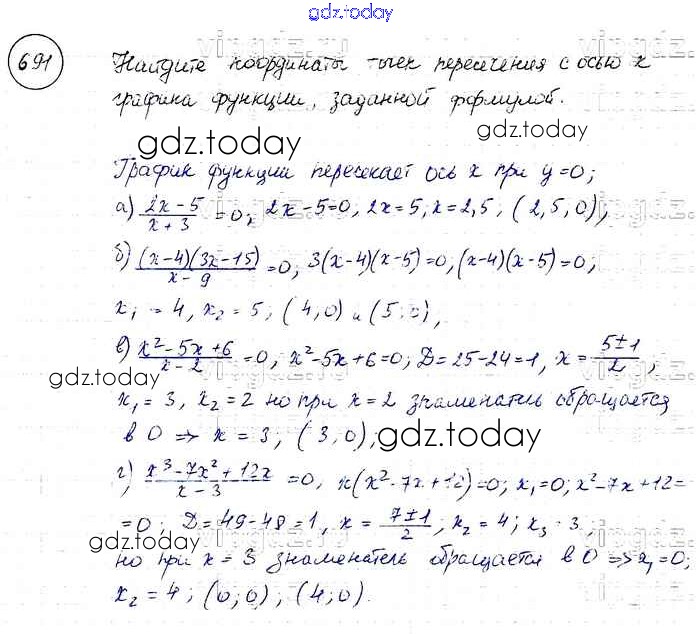 gdz.today
691
Найдите координаты точек пересечения с осью x
графика функции, заданной формулой.
gdz.today
gdz.today
График функции пересекает ось x при y=0;
а) (2x-5)/(x+3) =0; 2x-5=0, 2x=5; x=2,5; (2,5,0);
б) ((x-4)(3x-15))/(x-9) =0; 3(x-4)(x-5)=0, (x-4)(x-5)=0;
x₁=4, x₂=5; (4;0) и (5;0),
в) (x²-5x+6)/(x-2) =0; x²-5x+6=0; D=25-24=1, x= (5±1)/2,
gdz.today
x₁=3, x₂=2 но при x=2 знаменатель обращается
в 0 => x=3; (3,0);
gdz.today
г) (x³-7x²+12x)/(x-3) =0, x(x²-7x+12)=0; x₁=0; x²-7x+12=
=0; D=49-48=1, x= (7±1)/2; x₂=4; x₃=3,
gdz.today
gdz.today
но при x=3 знаменатель обращается в 0 => x₁=0;
x₂=4; (0;0); (4;0).